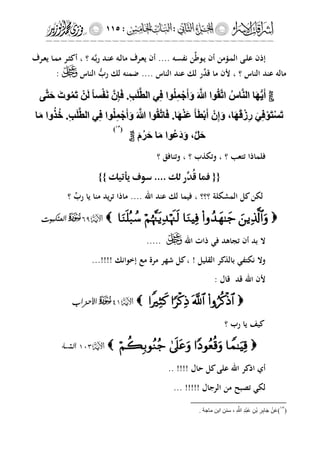 إشراقات الإسلام العنوان : السابعة : ١١٥
إذن على المؤمن أن يوطّن نفسه .... أن يعرف ماله عند ربِّه ؟ ، أكثر مما يعرف
ماله عند الناس ؟ ، لأن ما قدَّر لك عند الناس .... ضمنه لك ربُّ الناس ﷻ :
أَيُّهَا النَّاسُ اتَّقُوا اللَّهَ وَأَجْمِلُوا فِي الطَّلَبِ، فَإِنَّ نَفْساً لَنْ تَمُوتَ حَتَّى
تَسْتَوْفِيَ رِزْقَهَا، وَإِنْ أَبْطَأَ عَنْهَا، فَاتَّقُوا اللَّهَ وَأَجْمِلُوا فِي الطَّلَبِ، خُذُوا مَا
حَلَّ، وَدَعُوا مَا حَرُمَ (١٠)
فلماذا تتعب ؟ ، وتكذب ؟ ، وتنافق ؟
{{ فما قُدِّر لك .... سوف يأتيك }}
لكن كل المشكلة ؟؟؟ ، فيما لك عند الله .... ماذا تريد منا يا ربِّ ؟
﴿ وَٱلَّذِينَ جَٰهَدُوا۟ فِينَا لَنَهْدِيَنَّهُمْ سُبُلَنَا ﴾ الآية ٦٩ العنكبوت
لا بد أن تجاهد في ذات الله ﷻ .....
ولا نكتفي بالذكر القليل ! ، كل شهر مرة مع إخوانك !!!!...
لأن الله قد قال :
﴿ ٱذْكُرُوا۟ ٱللَّهَ ذِكْرًا كَثِيرًا ﴾ الآية ٤١ الأحزاب
كيف يا رب ؟
﴿ قِيَٰمًا وَقُعُودًا وَعَلَىٰ جُنُوبِكُمْ ﴾ الآية ١٠٣ النساء
أي اذكر الله على كل حال !!!! ..
لكي تصبح من الرجال !!!!! ...
(١٠) عَنْ جَابِرِ بْنِ عَبْدِ اللَّهِ ، سنن ابن ماجة .